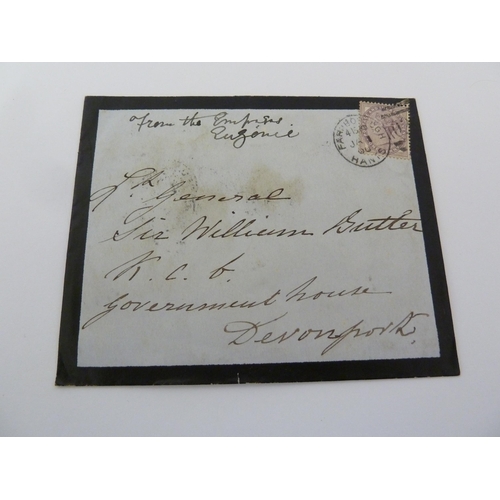 From the Empress
Eugénie
FARNBOROUGH
HANTS
Lt. General
Sir William Butler
K. C. B.
Government house
Devonport